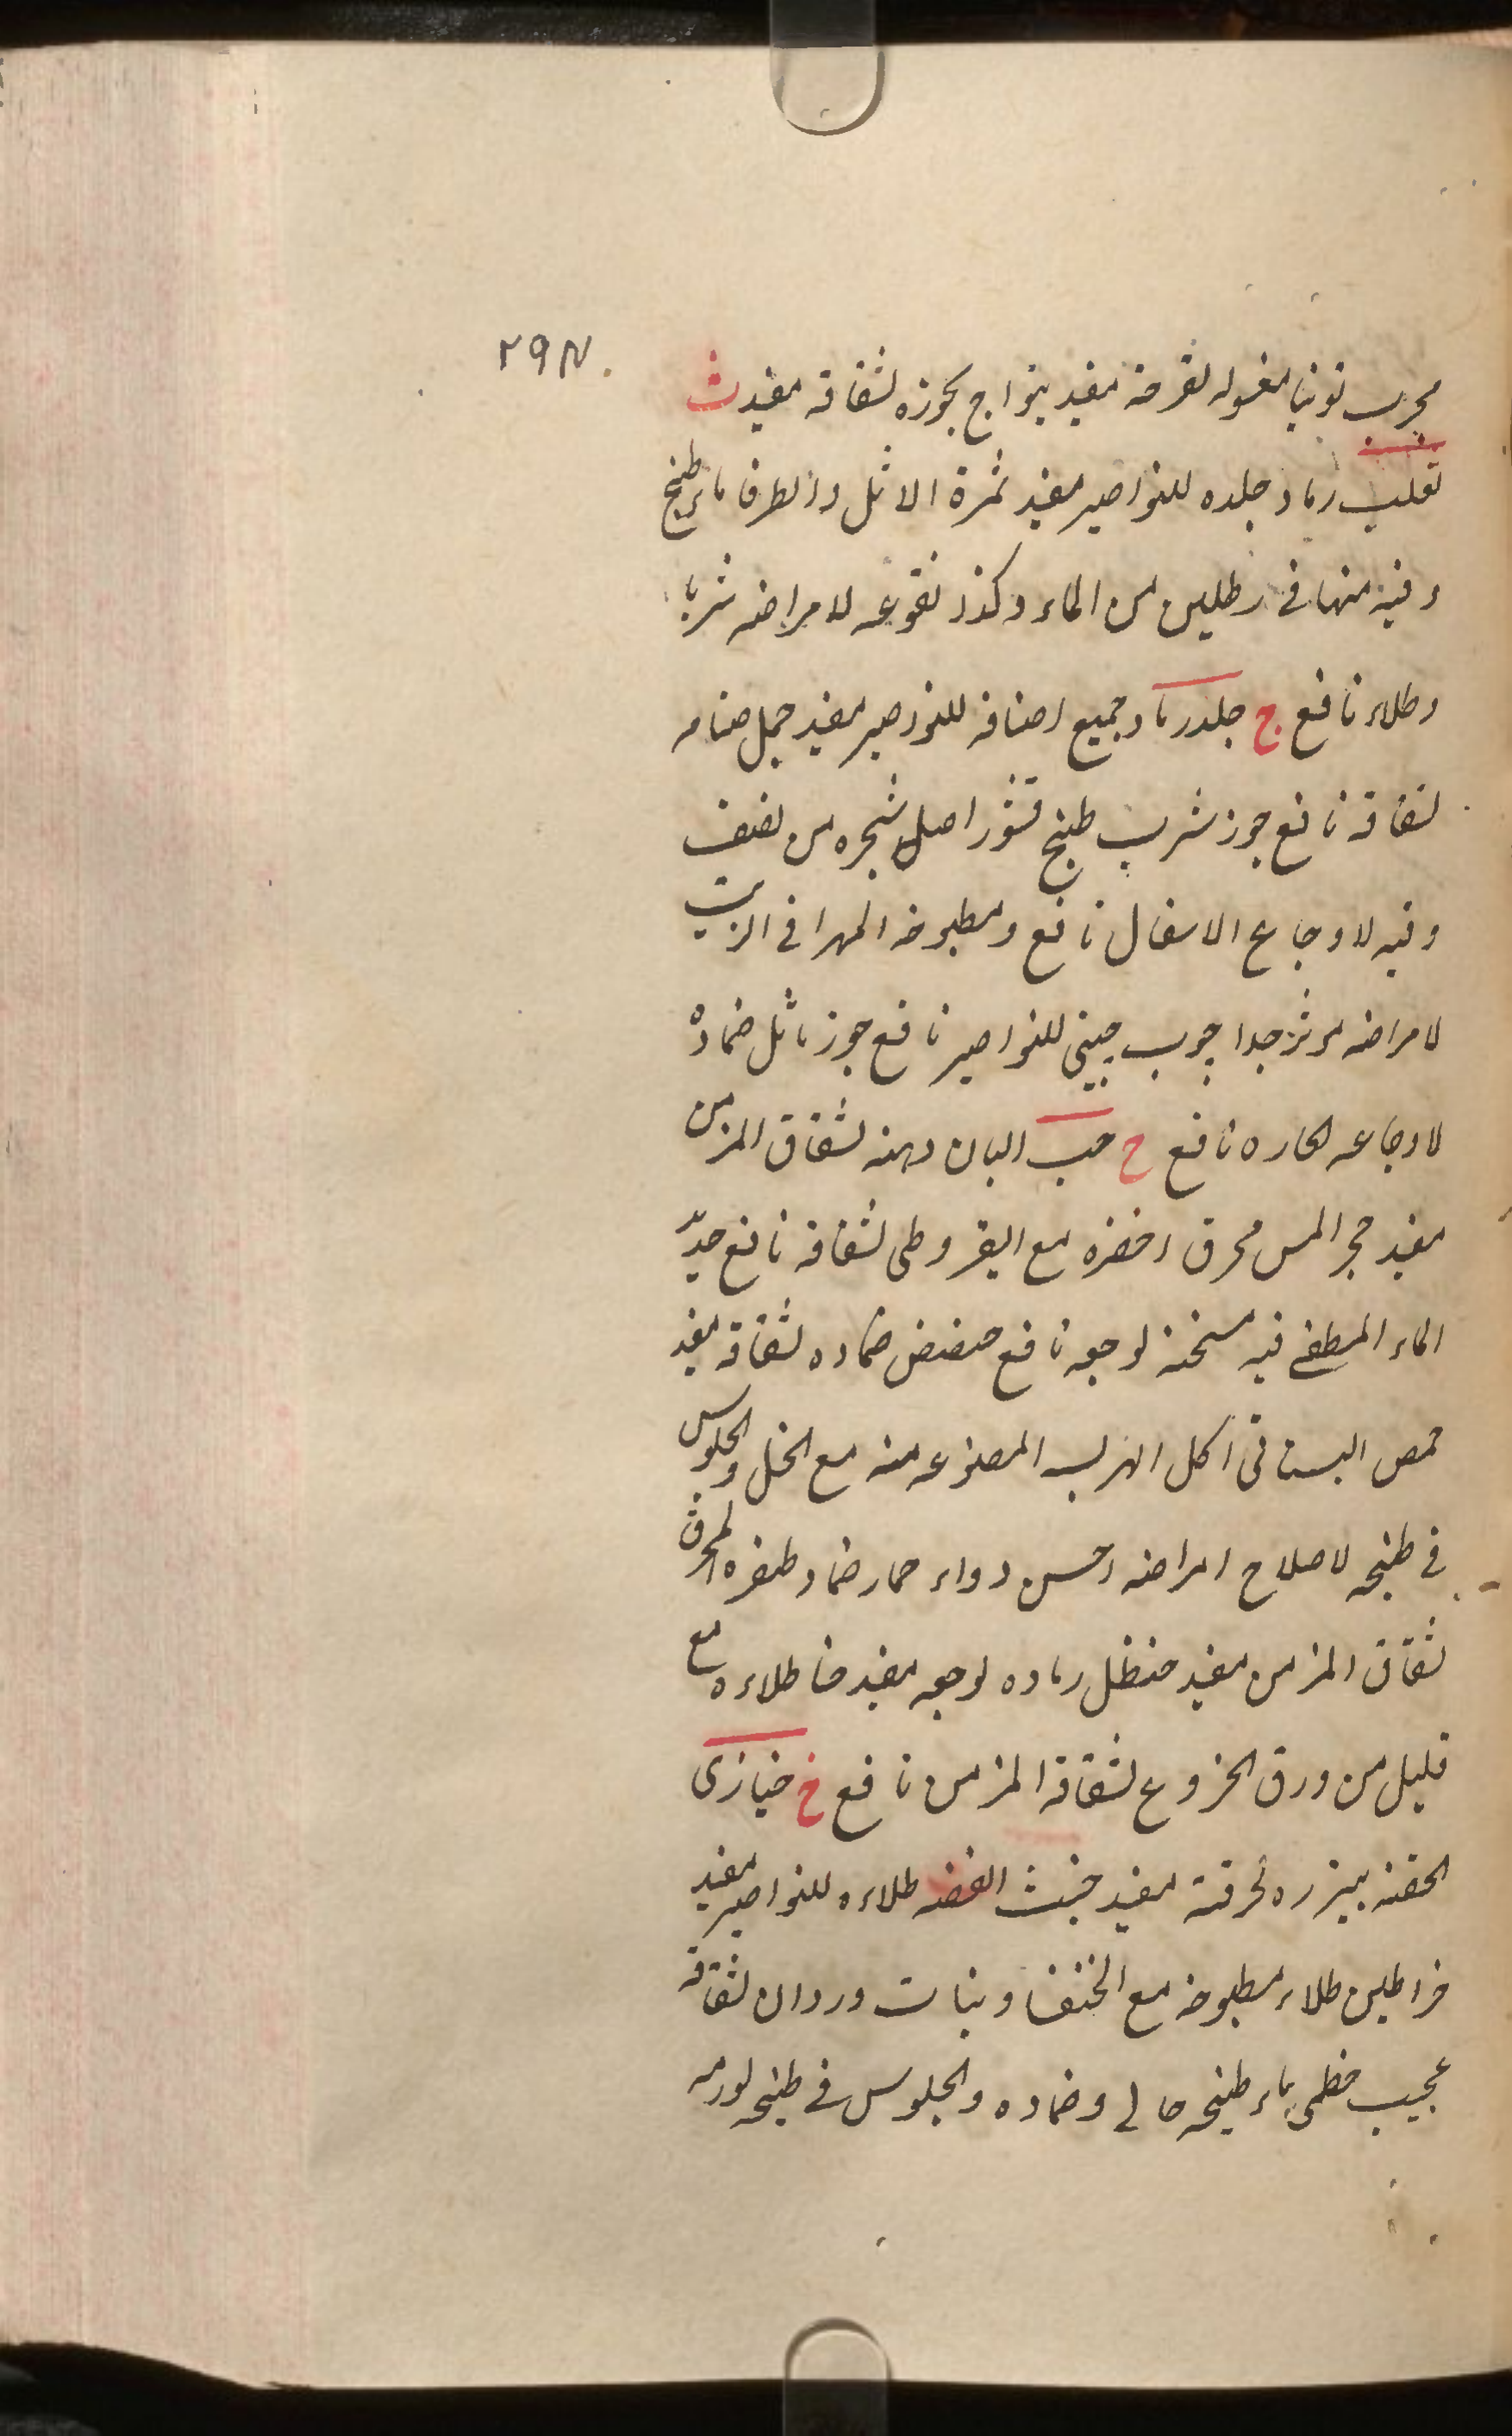 ٢٩٨
مجرب توتيا مغسوله لقرحة مفيد بخوره لشقاقه مفيد ث
ثعلب رماد جلده للنواصير مفيد ثمرة الاثل والطرفا ماء طبخ
وقيه منها فى رطلين من الماء وكذا نقوعه لامراضه شربا
وطلاء نافع ج جلد رماد جميع اصنافه للنواصير مفيد جمل سنامه
لشقاقه نافع جوز شرب طبخ قشور اصل شجره من نصف
وقيه لاوجاع الاسفال نافع ومطبوخه المهرا فى الزيت
لامراضه مؤثر جدا چوب چينى للنواصير نافع جوز ماثل ضماده
لاوجاعه الحاره نافع ح حب البان دهنه لشقاق المزمن
مفيد حجر المسن محرق اخضره مع القيروطى لشقاقه نافع حديد
الماء المطفى فيه مسخنه لوجعه نافع حضض ضماده لشقاقه مفيد
حمص البستانى اكل المصنوعه منه مع الخل والجلوس
فى طبخه لاصلاح امراضه احسن دواء حمار ضماد ظفره المحرق
لشقاق المزمن مفيد حنظل رماده لوجعه مفيد حنا طلاءه مع
قليل من ورق الخروع لشقاقه المزمن نافع خ خبازى
الحقنه ببزره لحرقته مفيد خبث الفضه طلاءه للنواصير مفيد
خراطين طلاء مطبوخه مع الخنفسا وبنات وردان لشقاقه
عجيب خطمى ماء طبخه وضماده والجلوس فى طبخه لورمه